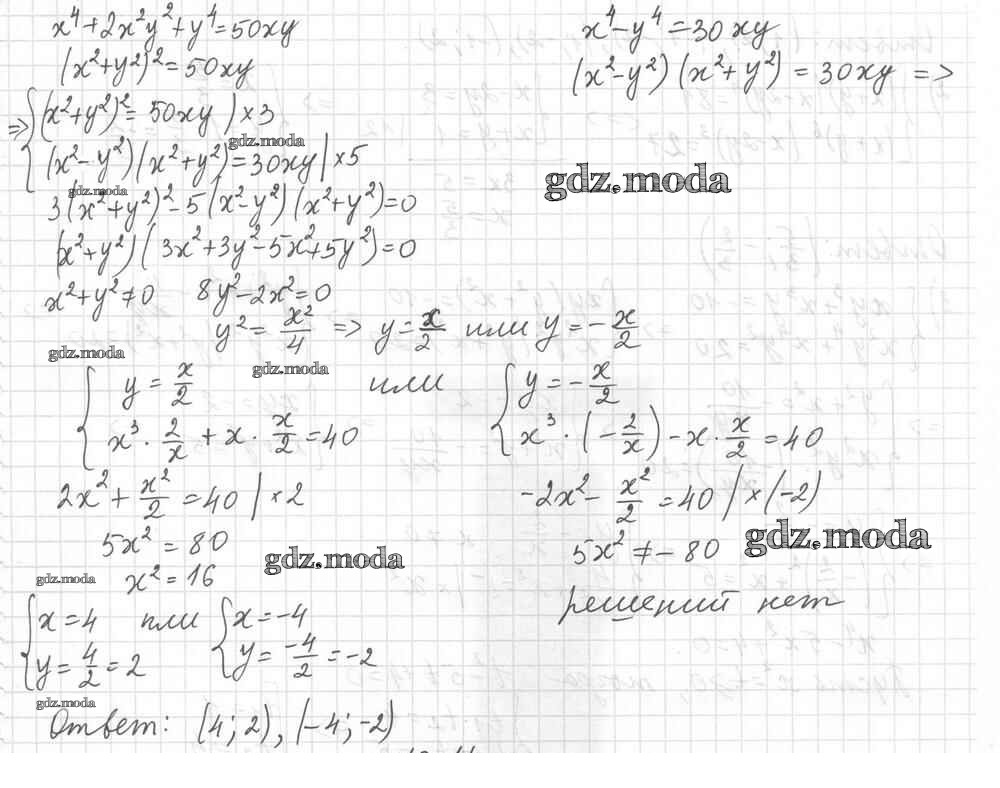 x⁴+2x²y²+y⁴=50xy
x⁴-y⁴=30xy
(x²+y²)²=50xy
(x²-y²)(x²+y²)=30xy =>
=> { (x²+y²)²=50xy | ×3
(x²-y²)(x²+y²)=30xy | ×5
gdz.moda
gdz.moda
gdz.moda
3(x²+y²)²-5(x²-y²)(x²+y²)=0
(x²+y²)(3x²+3y²-5x²+5y²)=0
x²+y²≠0 8y²-2x²=0
y²=x²/4 => y=x/2 или y=-x/2
gdz.moda
gdz.moda
{ y=x/2 или { y=-x/2
x³·2/x+x·x/2=40
x³·(-2/x)-x·x/2=40
2x²+x²/2=40 | ×2
-2x²-x²/2=40 | ×(-2)
5x²=80
5x²≠-80
gdz.moda
gdz.moda
gdz.moda
x²=16
решений нет
{ x=4 или { x=-4
y=4/2=2
y=-4/2=-2
gdz.moda
Ответ: (4;2), (-4;-2)